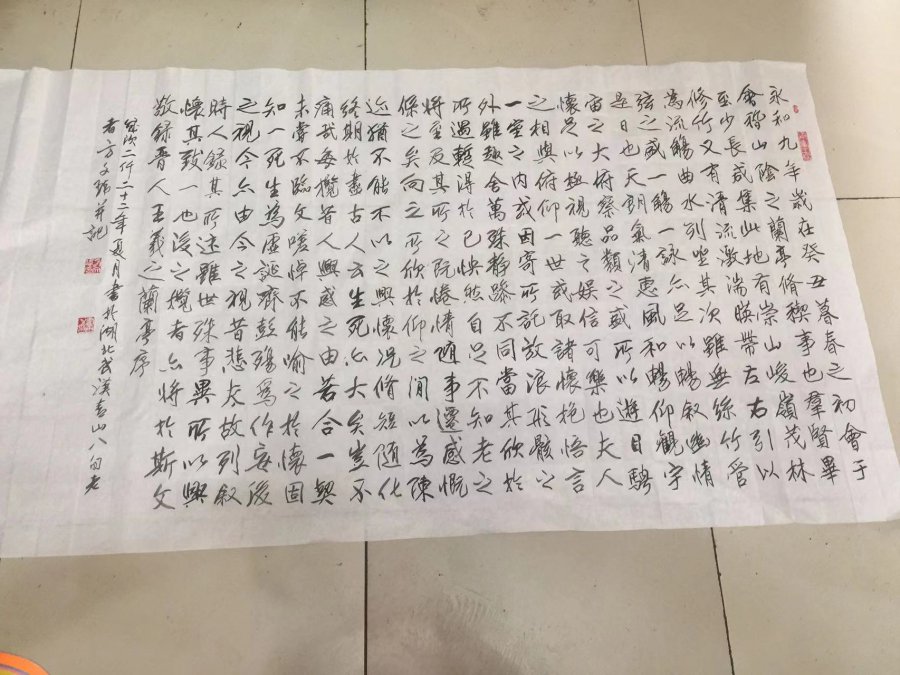 永和九年歲在癸丑暮春之初會于
會稽山陰之蘭亭脩稧事也群賢畢
至少長咸集此地有崇山峻嶺茂林
修竹又有清流激湍暎帶左右引以
為流觴曲水列坐其次雖無絲竹管
弦之盛一觴一詠亦足以暢敘幽情
是日也天朗氣清惠風和暢仰觀宇
宙之大俯察品類之盛所以遊目騁
懷足以極視聽之娛信可樂也夫人
之相與俯仰一世或取諸懷抱悟言
一室之內或因寄所託放浪形骸之
外雖趣舍萬殊靜躁不同當其欣於
所遇輒得於已怏然自足不知老之
將至及其所之既惓情隨事遷感慨
係之矣向之所欣於仰之間以為陳
迹猶不能不以之興懷況脩短隨化
終期於盡古人云生死亦大矣豈不
痛哉每攬昔人興感之由若合一契
未嘗不臨文嗟悼不能喻之於懷固
知一死生為虛誕齊彭殤為作妄後
之視今亦由今之視昔悲夫故列敘
時人錄其所述雖世殊事異所以興
懷其致一也後之攬者亦將於斯文
敬錄晋人王羲之蘭亭序
歲次二仟二十二年夏月書於湖北武漢青山八旬老
者方子强并記